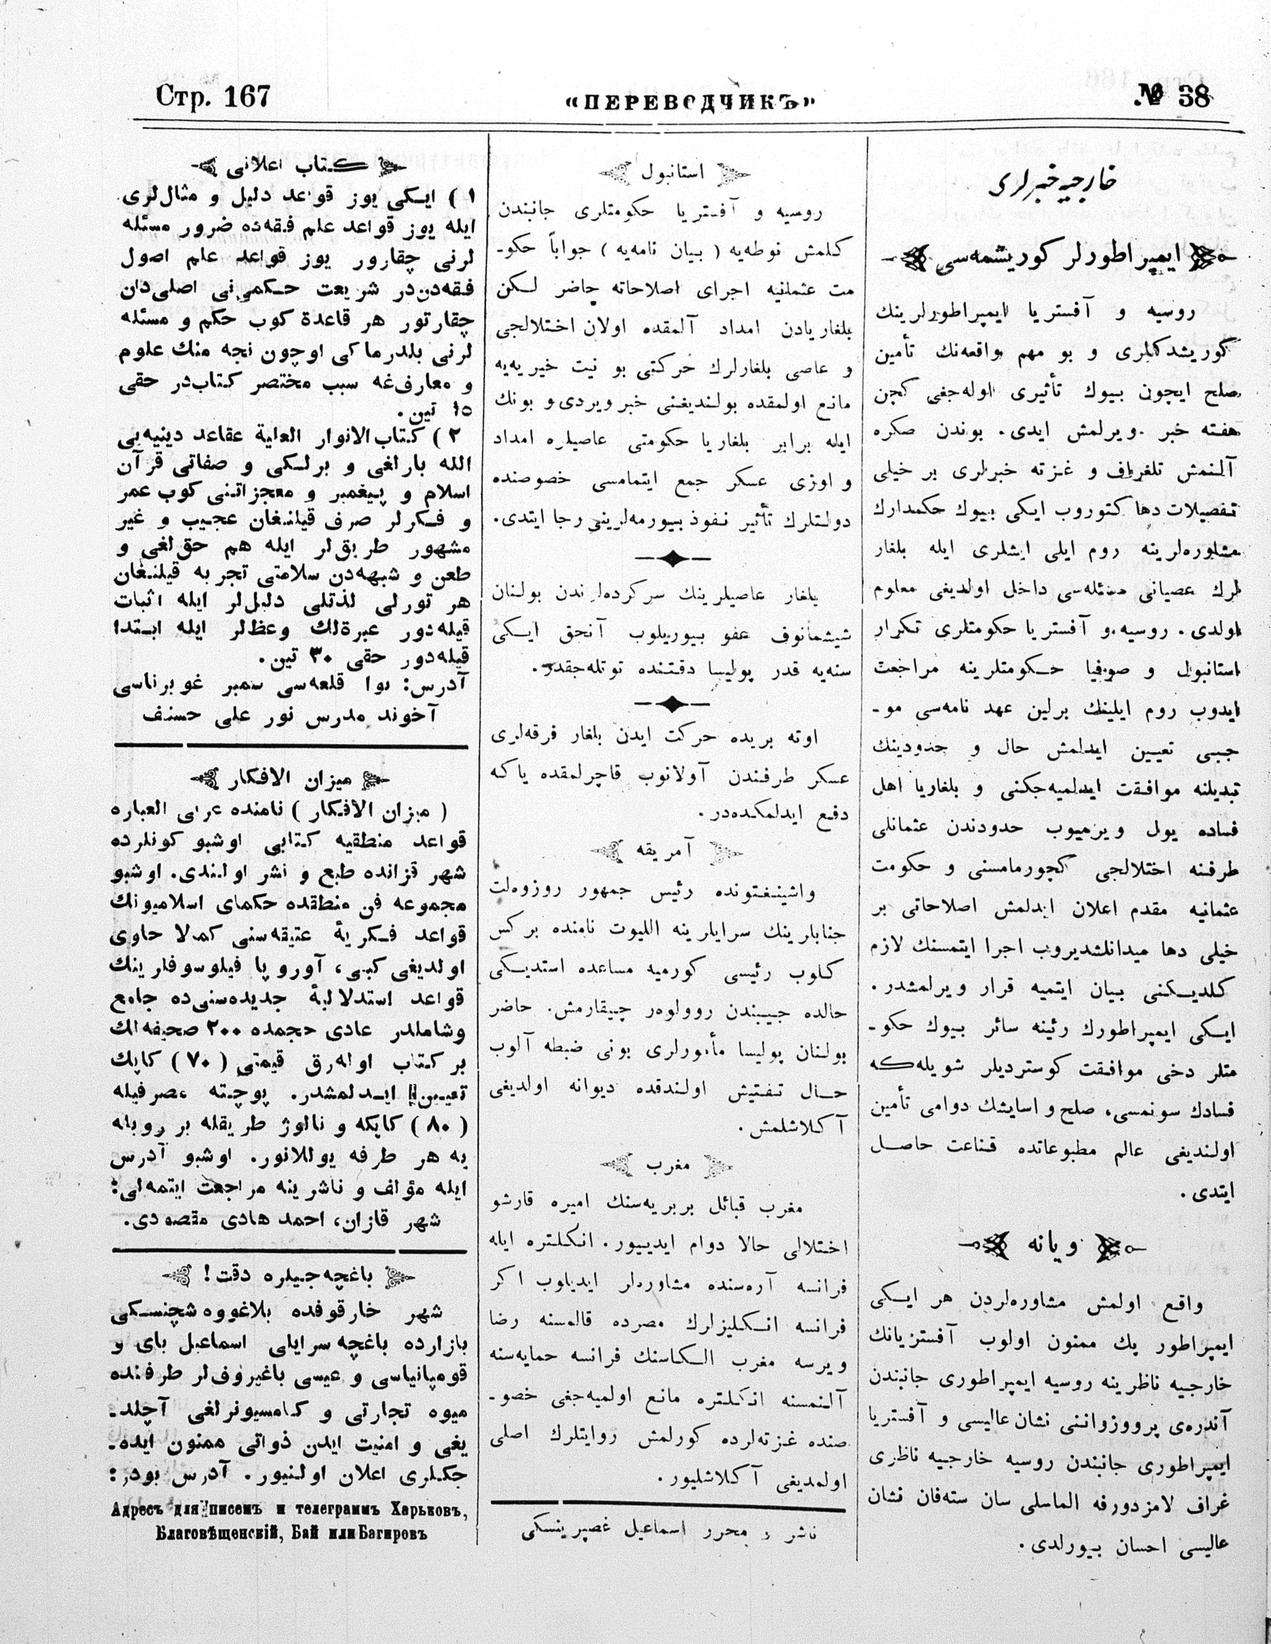 Стр. 167
«ПЕРЕВОДЧИКЪ»
№ 38
خارجیه خبرلری
ایمپراطورلر کوریشمه‌سی
روسیه و آفستریا ایمپراطورلرینك
کوریشدکلری و بو مهم واقعه‌نك تأمین
صلح ایچون بیوك تأثیری اوله‌جغی کچن
هفته خبر ویرلمش ایدی. بوندن صکره
آلنمش تلغراف و غزته خبرلری بر خیلی
تفصیلات دها کتوروب ایکی بیوك حکمدارك
مشاوره‌لرینه روم ایلی ایشلری ایله بلغار
لرك عصیانی مسئله‌سی داخل اولدیغی معلوم
اولدی. روسیه و آفستریا حکومتلری تکرار
استانبول و صوفیا حکومتلرینه مراجعت
ایدوب روم ایلینك برلین عهد نامه‌سی مو-
جبی تعیین ایدلمش حال و حدودینك
تبدیلنه موافقت ایدلمیه‌جکنی و بلغاریا اهل
فساده یول ویرمیوب حدودندن عثمانلی
طرفنه اختلالجی کچورمامسنی و حکومت
عثمانیه مقدم اعلان ایدلمش اصلاحاتی بر
خیلی دها میدانلشدیروب اجرا ایتمسنك لازم
کلدیکنی بیان ایتمیه قرار ویرلمشدر.
ایکی ایمپراطورك رئینه سائر بیوك حکو-
متلر دخی موافقت کوستردیلر شویله‌که
فسادك سونمسی، صلح و اسایشك دوامی تأمین
اولندیغی عالم مطبوعاتده قناعت حاصل
ایتدی.
ویانه
واقع اولمش مشاوره‌لردن هر ایکی
ایمپراطور پك ممنون اولوب آفستریانك
خارجیه ناظرینه روسیه ایمپراطوری جانبندن
آندره‌ی پرووزواننی نشان عالیسی و آفستریا
ایمپراطوری جانبندن روسیه خارجیه ناظری
غراف لامزدورفه الماسلی سان سته‌فان نشان
عالیسی احسان بیورلدی.
استانبول
روسیه و آفستریا حکومتلری جانبندن
کلمش نوطه‌یه (بیان نامه‌یه) جواباً حکو-
مت عثمانیه اجرای اصلاحاته حاضر لکن
بلغاریادن امداد آلمقده اولان اختلالجی
و عاصی بلغارلرك حرکتی بو نیت خیریه‌یه
مانع اولمقده بولندیغنی خبر ویردی و بونك
ایله برابر بلغاریا حکومتی عاصیلره امداد
و اوزی عسکر جمع ایتمامسی خصوصنده
دولتلرك تأثیر نفوذ بیورمه‌لرینی رجا ایتدی.
بلغار عاصیلرینك سرکرده‌لرندن بولنان
شیشمانوف عفو بیوریلوب آنجق ایکی
سنه‌یه قدر پولیسا دقتنده توتله‌جقدر.
اوته بریده حرکت ایدن بلغار فرقه‌لری
عسکر طرفندن آولانوب قاچرلمقده یاکه
دفع ایدلمکده‌در.
آمریقه
واشینغتونده رئیس جمهور روزوه‌لت
جنابلرینك سرایلرینه اللیوت نامنده برکس
کلوب رئیسی کورمیه مساعده استدیکی
حالده جیبندن روولوه‌ر چیقارمش. حاضر
بولنان پولیسا مأمورلری بونی ضبطه آلوب
حال تفتیش اولندقده دیوانه اولدیغی
آکلاشلمش.
مغرب
مغرب قبائل بربریه‌سنك امیره قارشو
اختلالی حالا دوام ایدییور. انکلتره ایله
فرانسه آره‌سنده مشاوره‌لر ایدیلوب اکر
فرانسه انکلیزلرك مصرده قالمسنه رضا
ویرسه مغرب الکاسنك فرانسه حمایه‌سنه
آلنمسنه انکلتره مانع اولمیه‌جغی خصو-
صنده غزته‌لرده کورلمش روایتلرك اصلی
اولمدیغی آکلاشلیور.
ناشر و محرر اسماعیل غصپرینسکی
کتاب اعلانی
۱) ایکی یوز قواعد دلیل و مثال‌لری
ایله یوز قواعد علم فقه‌ده ضرور مسئله
لرنی چقارور یوز قواعد علم اصول
فقه‌دن‌در شریعت حکمی‌نی اصلی‌دان
چقارتور هر قاعدۀ کوب حکم و مسئله
لرنی بلدرماکی اوچون نجه منك علوم
و معارف‌غه سبب مختصر کتاب‌در حقی
۱۵ تین.
۲) کتاب الانوار العالیة عقاعد دینیه‌یی
الله بارلغی و برلکی و صفاتی قرآن
اسلام و پیغمبر و معجزاتنی کوب عمر
و فکرلر صرف قیلنغان عجیب و غیر
مشهور طریق‌لر ایله هم حق‌لغی و
طعن و شبهه‌دن سلامتی تجربه قیلنغان
هر تورلی لذتلی دلیل‌لر ایله اثبات
قیله‌دور عبرة‌لك وعظ‌لر ایله ابتدا
قیله‌دور حقی ۳۰ تین.
آدرس: بوا قلعه‌سی سمبر غوبرناسی
آخوند مدرس نور علی حسنف
میزان الافکار
(میزان الافکار) نامنده عربی العباره
قواعد منطقیه کتابی اوشبو کونلرده
شهر قزانده طبع و نشر اولندی. اوشبو
مجموعه فن منطقده حکمای اسلامیونك
قواعد فکریۀ عتیقه‌سنی کملا حاوی
اولدیغی کبی، آوروپا فیلوسوفلرینك
قواعد استدلالیۀ جدیده‌سنی‌ده جامع
وشاملدر عادی حجمده ۲۰۰ صحیفه‌لك
بر کتاب اوله‌رق قیمتی (۷۰) کاپك
تعیین ایدلمشدر. پوچته مصرفیله
(۸۰) کاپکه و نالوژ طریقله بر روبله
یه هر طرفه یوللانور. اوشبو آدرس
ایله مؤلف و ناشرینه مراجعت ایتمه‌لی:
شهر قازان، احمد هادی مقصودی.
باغچه‌جیلره دقت!
شهر خارقوفده بلاغووه‌شچنسکی
بازارده باغچه سرایلی اسماعیل بای و
قومپانیاسی و عیسی باغیروف‌لر طرفنده
میوه تجارتی و کامسیونرلغی آچلد-
یغی و امنیت ایدن ذواتی ممنون ایده-
جکلری اعلان اولنیور. آدرس بودر:
Адресъ для писемъ и телеграмъ Харьковъ,
Благовѣщенскій, Бай или Багировъ